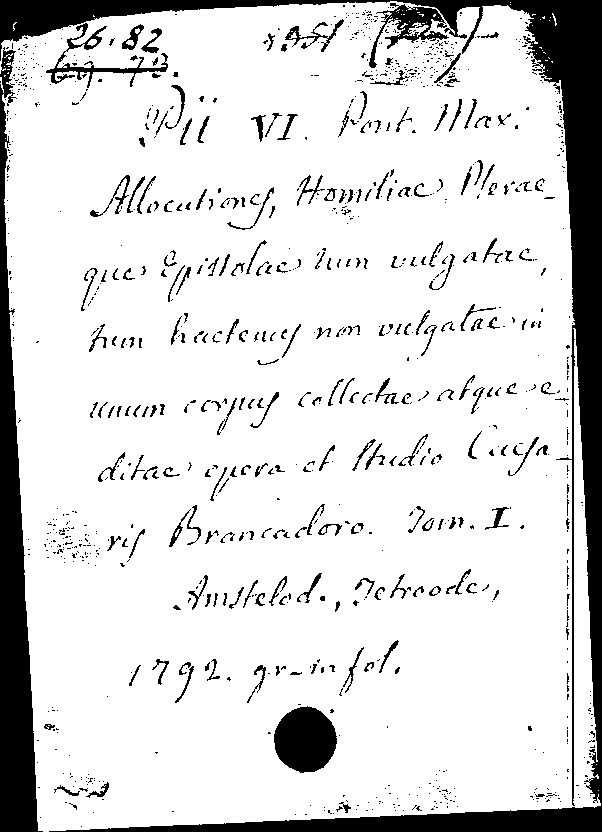 26.82
69.73.
Pii VI. Pont. Max.
Allocutiones, Homiliae, Plerae-
que Epistolae tum vulgatae,
tum hactenus non vulgatae in
unum corpus collectae atque e-
ditae opera et Studio Caesa-
ris Brancadoro. Tom. I.
Amstelod., Tetroode,
1792. gr-in fol.